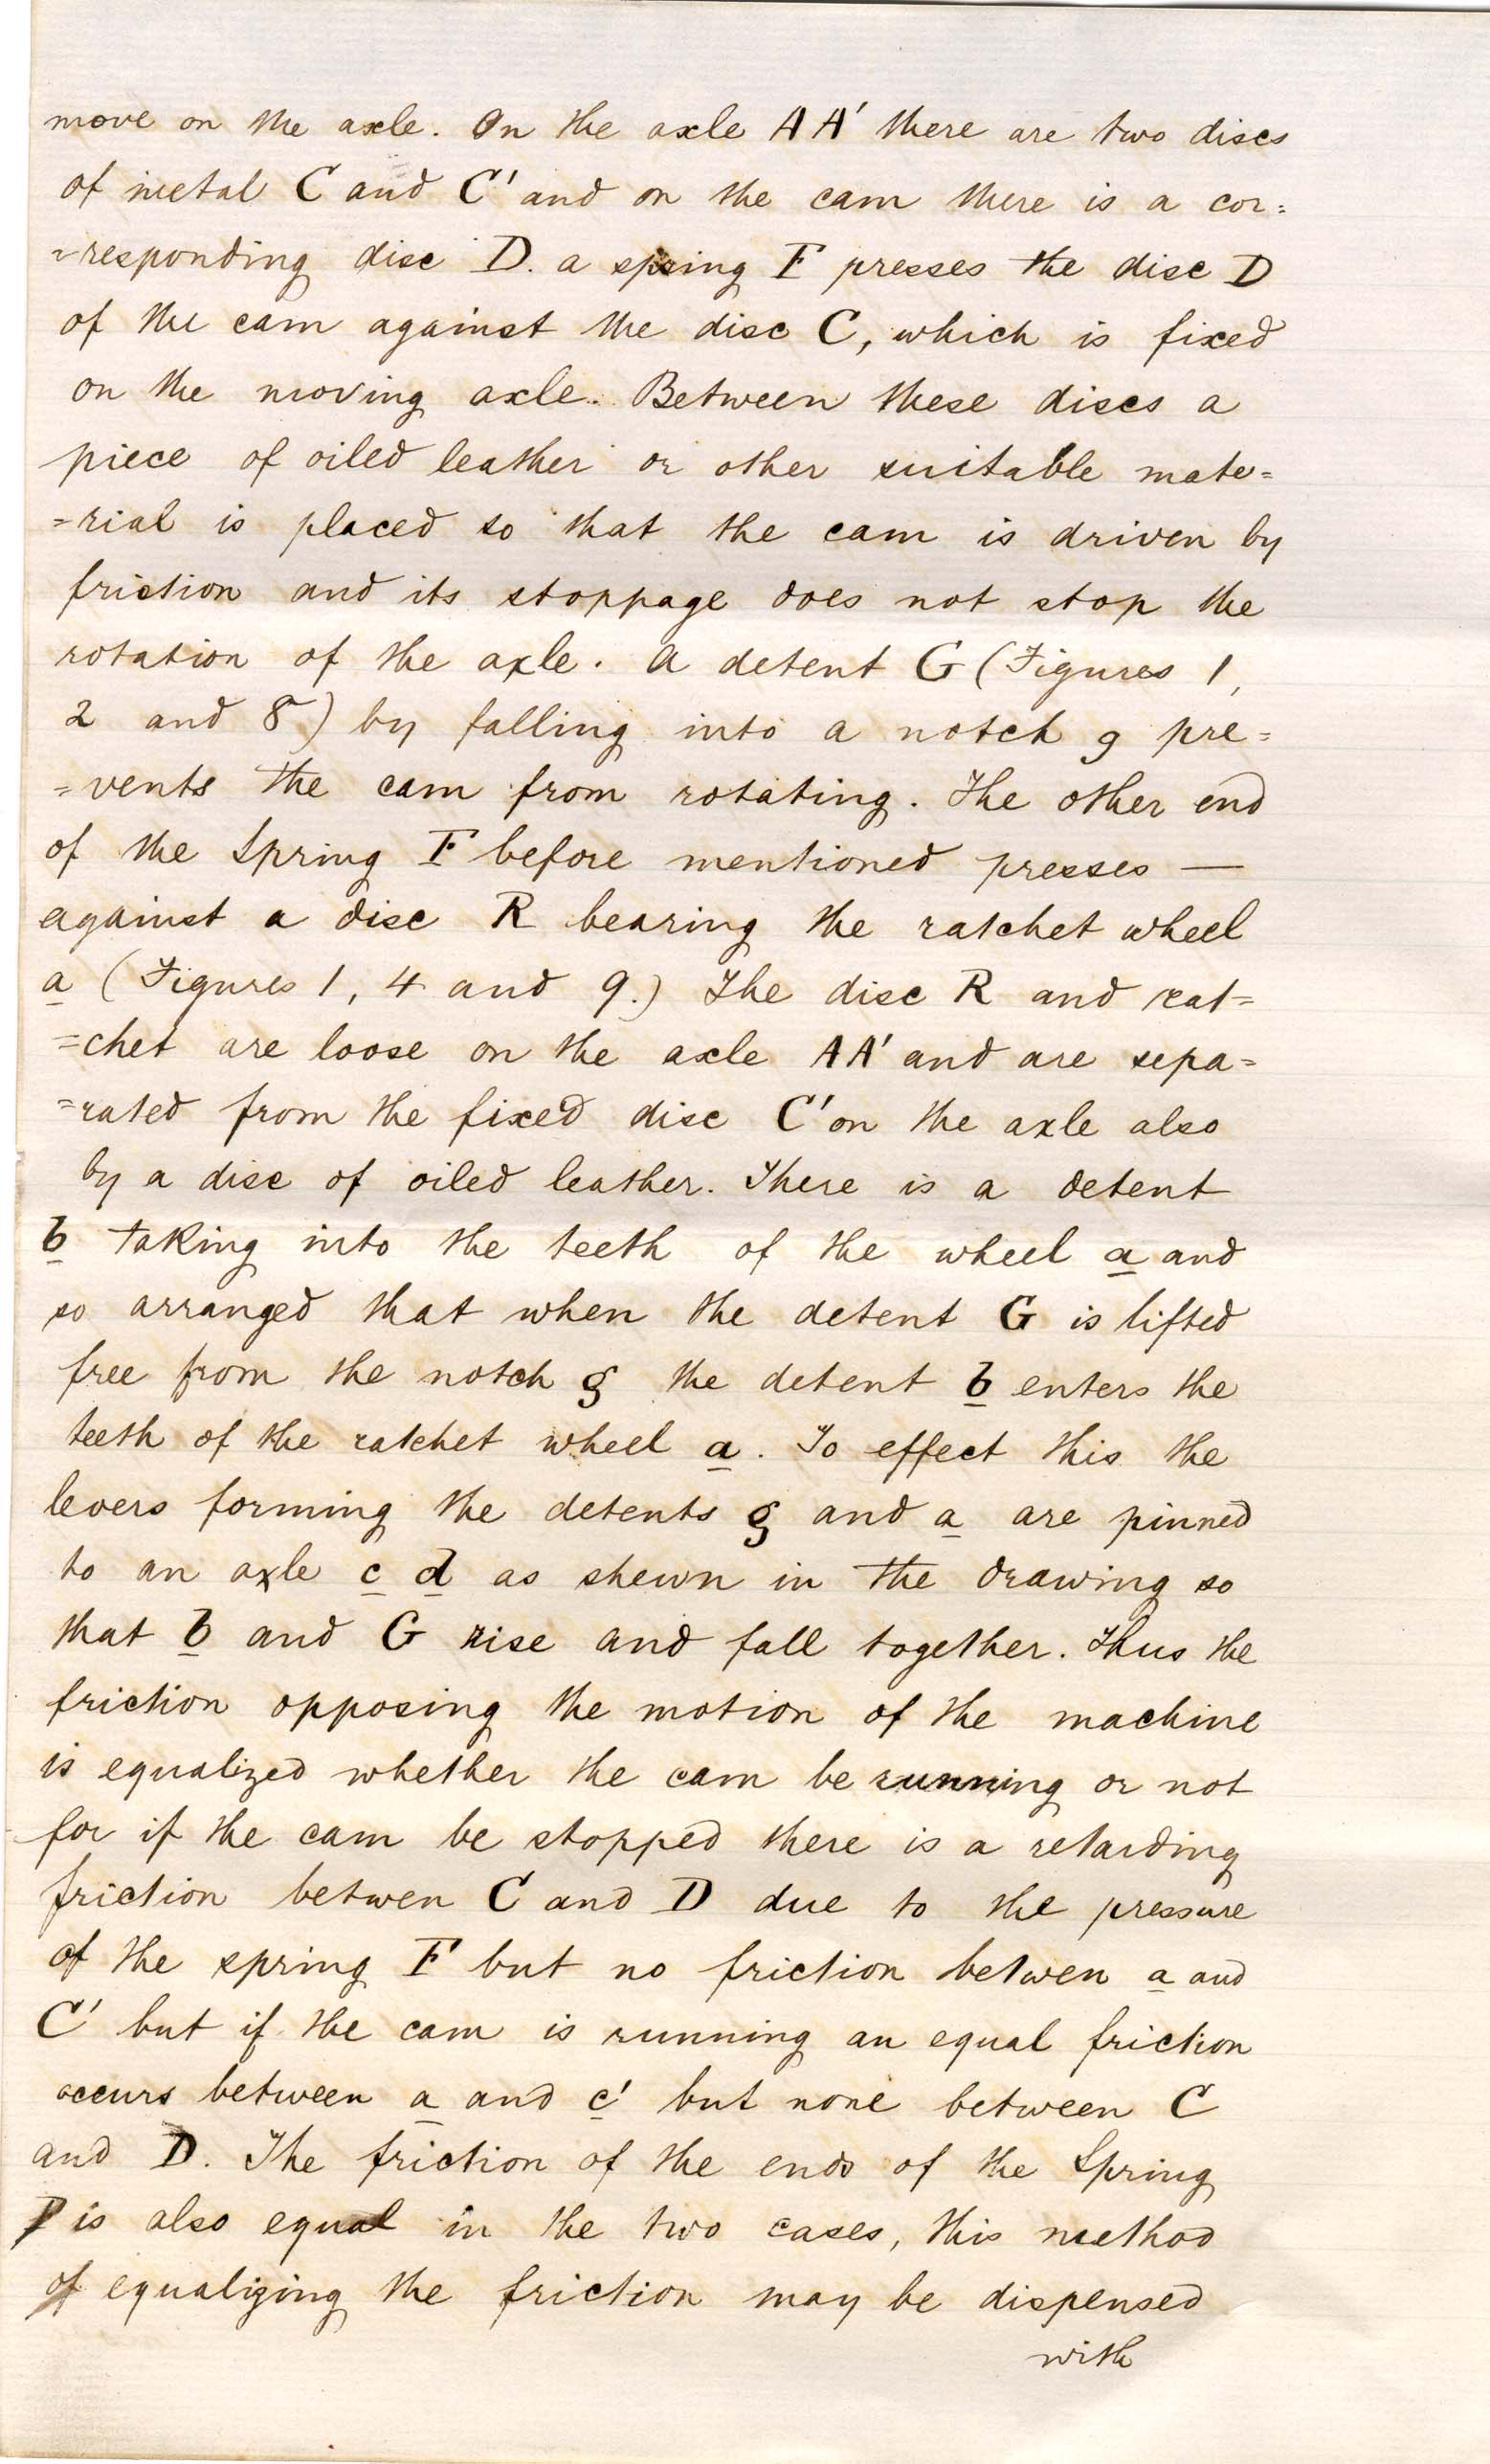 move on the axle. On the axle A A' there are two discs
of metal C and C' and on the cam there is a cor=
=responding disc D. a spring F presses the disc D
of the cam against the disc C, which is fixed
on the moving axle. Between these discs a
piece of oiled leather or other suitable mate=
=rial is placed so that the cam is driven by
friction and its stoppage does not stop the
rotation of the axle. A detent G (Figures 1,
2 and 8) by falling into a notch g pre=
=vents the cam from rotating. The other end
of the Spring F before mentioned presses —
against a disc R bearing the ratchet wheel
a (Figures 1, 4 and 9.) The disc R and rat=
=chet are loose on the axle A A' and are sepa=
=rated from the fixed disc C' on the axle also
by a disc of oiled leather. There is a detent
b taking into the teeth of the wheel a and
so arranged that when the detent G is lifted
free from the notch g the detent b enters the
teeth of the ratchet wheel a. To effect this the
levers forming the detents g and a are pinned
to an axle c d as shewn in the drawing so
that b and G rise and fall together. Thus the
friction opposing the motion of the machine
is equalized whether the cam be running or not
for if the cam be stopped there is a retarding
friction betwen C and D due to the pressure
of the spring F but no friction betwen a and
C' but if the cam is running an equal friction
occurs between a and c' but none between C
and D. The friction of the ends of the Spring
F is also equal in the two cases, this method
of equalizing the friction may be dispensed
with